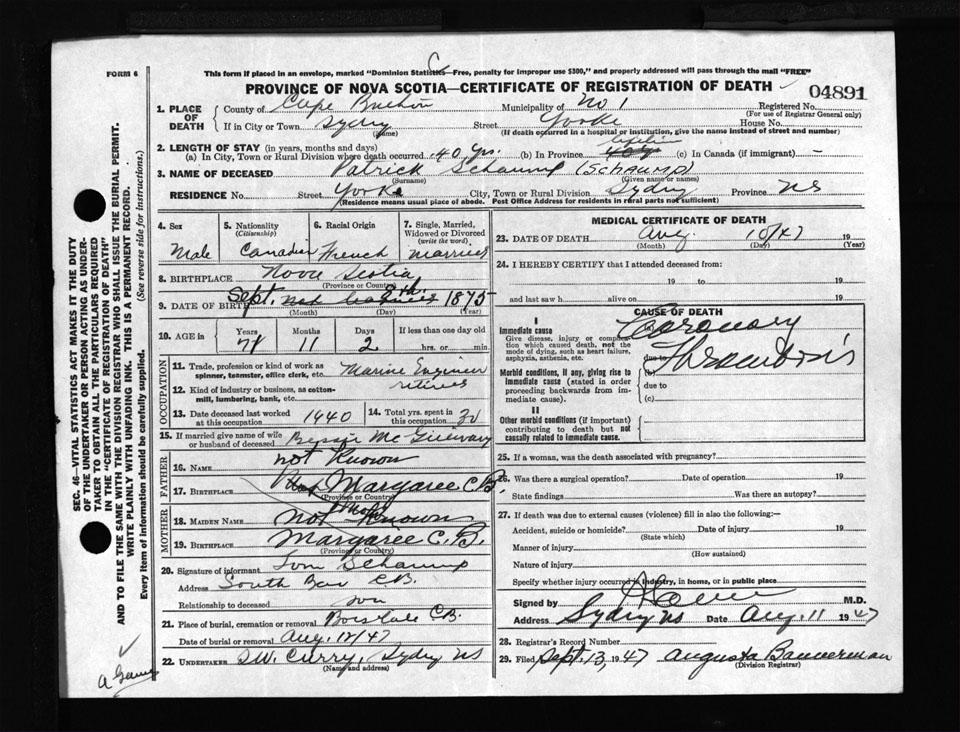 FORM 6
This form if placed in an envelope, marked "Dominion Statistics—Free, penalty for improper use $300," and properly addressed will pass through the mail "FREE"
PROVINCE OF NOVA SCOTIA—CERTIFICATE OF REGISTRATION OF DEATH
04891
1. PLACE OF DEATH
County of Cape Breton Municipality of No 1 Registered No.
(For use of Registrar General only)
If in City or Town Sydney Street Yorke House No.
(Name) (If death occurred in a hospital or institution, give the name instead of street and number)
2. LENGTH OF STAY (in years, months and days)
(a) In City, Town or Rural Division where death occurred 40 yrs. (b) In Province (c) In Canada (if immigrant) —
3. NAME OF DECEASED Patrick Schaump (Schaump)
(Surname) (Given name or names)
RESIDENCE No. Street Yorke City, Town or Rural Division Sydney Province NS
(Residence means usual place of abode. Post Office Address for residents in rural parts not sufficient)
4. Sex
Male
5. Nationality
(Citizenship)
Canadian
6. Racial Origin
French
7. Single, Married, Widowed or Divorced
(write the word)
Married
8. BIRTHPLACE Nova Scotia
(Province or Country)
9. DATE OF BIRTH Sept. 8th. 1875
(Month) (Day) (Year)
10. AGE in
Years Months Days If less than one day old
71 11 2 hrs. or min.
OCCUPATION
11. Trade, profession or kind of work as
spinner, teamster, office clerk, etc. Marine Engineer
12. Kind of industry or business, as cotton-
mill, lumbering, bank, etc. retired
13. Date deceased last worked
at this occupation 1940
14. Total yrs. spent in
this occupation 30
15. If married give name of wife
or husband of deceased Bessie McGillvary
FATHER
16. NAME not Known
17. BIRTHPLACE Margaree C.B.
(Province or Country)
MOTHER
18. MAIDEN NAME Not Known
19. BIRTHPLACE Margaree C.B.
(Province or Country)
20. Signature of informant Tom Schaump
Address South Bar C.B.
Relationship to deceased son
21. Place of burial, cremation or removal Boisdale C.B.
Date of burial or removal Aug. 12/47
22. UNDERTAKER S.W. Curry, Sydney NS
(Name and address)
MEDICAL CERTIFICATE OF DEATH
23. DATE OF DEATH Aug. 10/47 19
(Month) (Day) (Year)
24. I HEREBY CERTIFY that I attended deceased from:
19 to 19
and last saw h alive on 19
CAUSE OF DEATH
I
Immediate cause (a) Coronary
Give disease, injury or complica-
tion which caused death, not the
mode of dying, such as heart failure,
asphyxia, asthenia, etc.
due to Thrombosis
Morbid conditions, if any, giving rise to
immediate cause (stated in order
proceeding backwards from im-
mediate cause).
(b)
due to
(c)
II
Other morbid conditions (if important)
contributing to death but not
causally related to immediate cause.
25. If a woman, was the death associated with pregnancy?
26. Was there a surgical operation? Date of operation 19
State findings Was there an autopsy?
27. If death was due to external causes (violence) fill in also the following:—
Accident, suicide or homicide? Date of injury 19
(State which)
Manner of injury
(How sustained)
Nature of injury
Specify whether injury occurred in industry, in home, or in public place
Signed by M.D.
Address Sydney NS Date Aug. 11 1947
28. Registrar's Record Number
29. Filed Sept. 13 1947 Augusta Bannerman
(Division Registrar)
SEC. 46—VITAL STATISTICS ACT MAKES IT THE DUTY
OF THE UNDERTAKER OR PERSON ACTING AS UNDER-
TAKER TO OBTAIN ALL THE PARTICULARS REQUIRED
IN THE "CERTIFICATE OF REGISTRATION OF DEATH"
AND TO FILE THE SAME WITH THE DIVISION REGISTRAR WHO SHALL ISSUE THE BURIAL PERMIT.
WRITE PLAINLY WITH UNFADING INK. THIS IS A PERMANENT RECORD.
Every item of information should be carefully supplied. (See reverse side for instructions.)